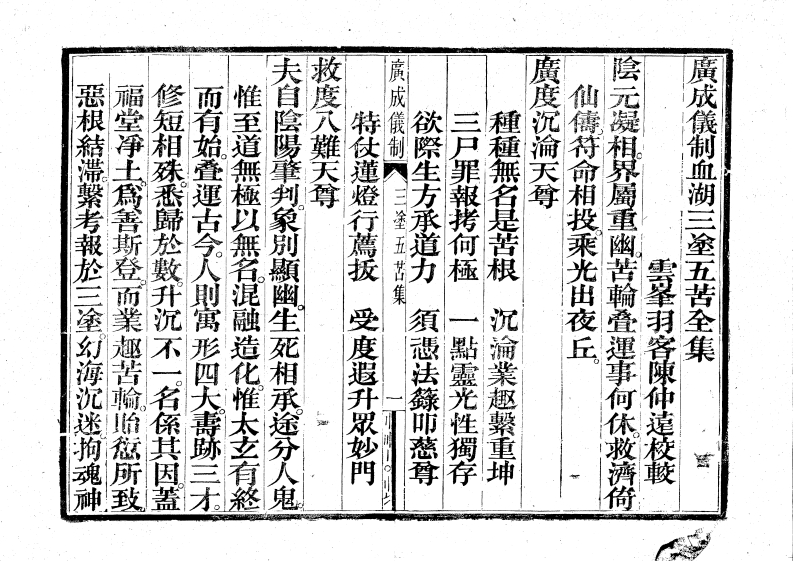 廣成儀制血湖三塗五苦全集
雲峯羽客陳仲遠校較
陰元凝相。界屬重幽。苦輪叠運事何休。救濟倚
仙儔符命相投。乘光出夜丘。
廣度沉淪天尊
種種無名是苦根　沉淪業趣繫重坤
三尸罪報拷何極　一點靈光性獨存
欲際生方承道力　須憑法籙叩慈尊
廣成儀制　三塗五苦集　一
特仗蓮燈行薦拔　受度遐升眾妙門
救度八難天尊
夫自陰陽肇判。象別顯幽。生死相承。途分人鬼。
惟至道無極以無名。混融造化。惟太玄有終
而有始。叠運古今。人則寓形四大。壽跡三才。
修短相殊。悉歸於數。升沉不一。名係其因。蓋
福堂淨土。爲善斯登。而業趣苦輪。貽愆所致。
惡根結滯。繫考報於三塗。幻海沉迷。拘魂神